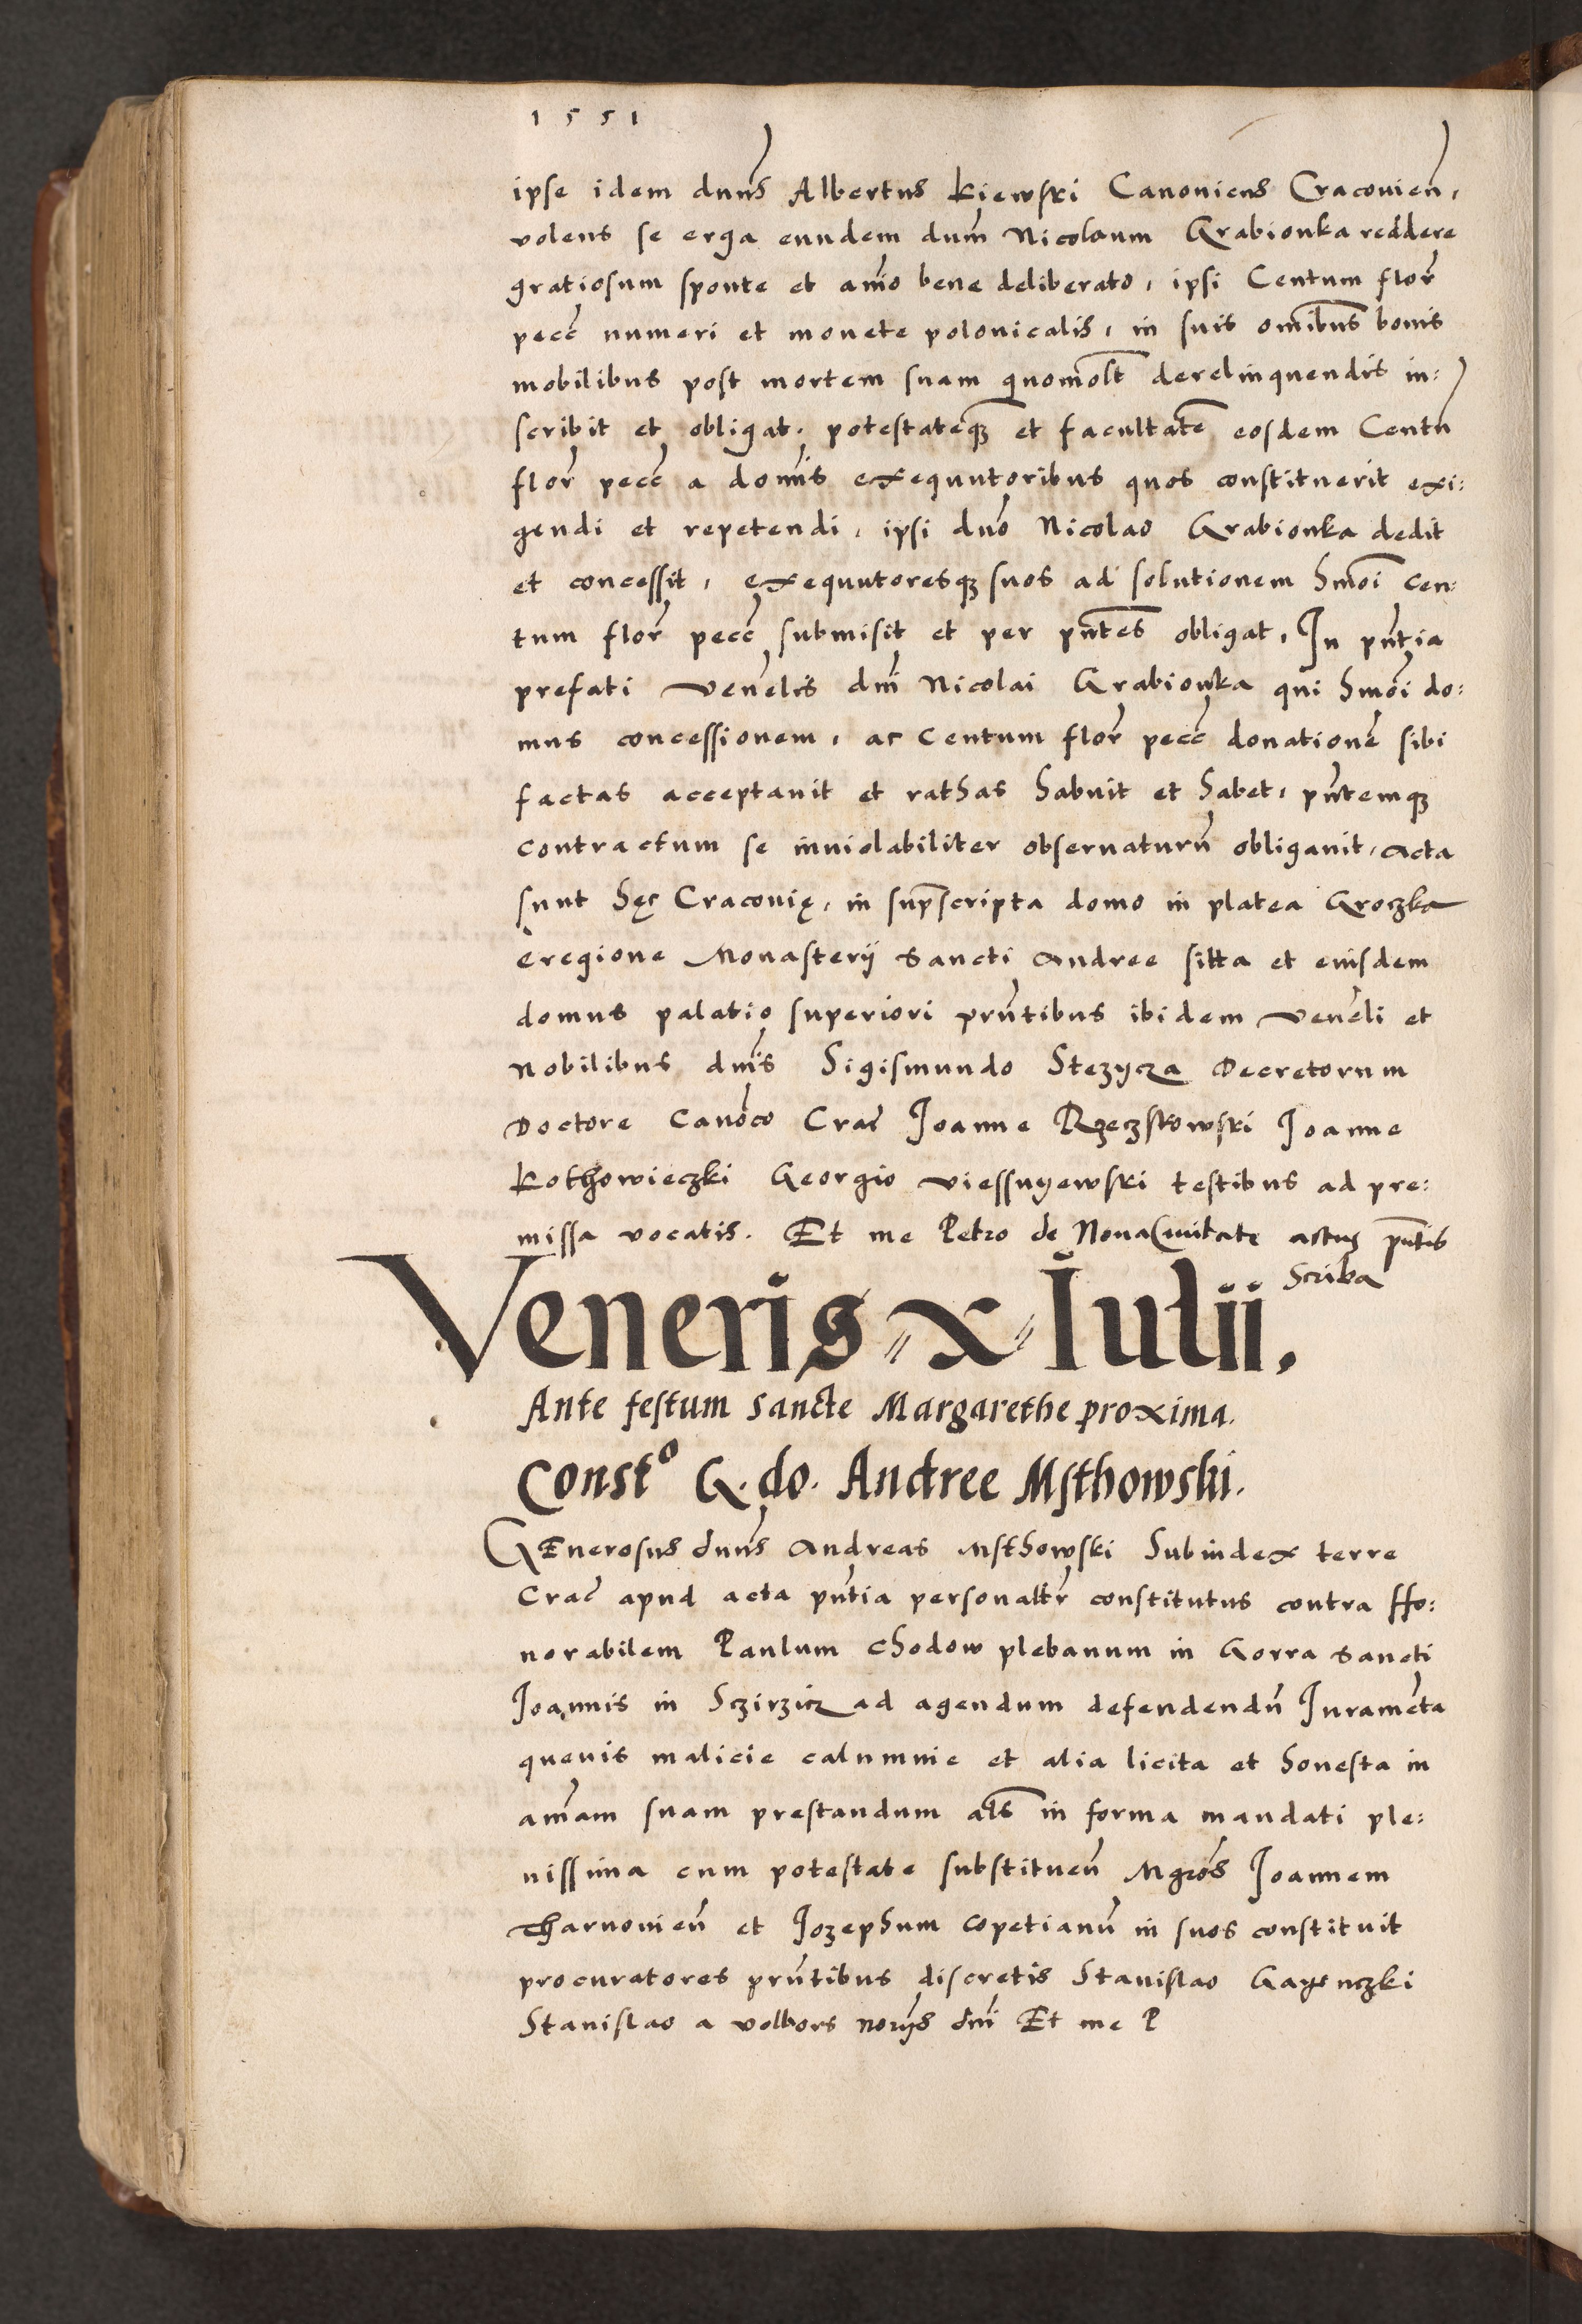 1551
ipse idem dnns Albertus Kiewski Canonicus Cracovien,
volens se erga eundem dum Nicolaum Grabionka reddere
gratiosum sponte et aio bene deliberato, ipsi Centum flor
pecc numeri et monete polonicalis, in suis omibus bonis
mobilibus post mortem suam quomolt derelinquendis in:
scribit et obligat. potestateqz et facultate eosdem Centu
flor pecc a domis exequutoribus quos constituerit exi:
gendi et repetendi, ipsi dno Nicolao Grabionka dedit
et concessit, exequutoresqz suos ad solutionem hmoi cen:
tum flor pecc submisit et per pntes obligat, In pntia
prefati venelis dni Nicolai Grabionka qui hmoi do:
mus concessionem, ac Centum flor pecc donatione sibi
factas acceptavit et rathas habuit et habet, pntemqz
contractum se inviolabiliter observaturu obligavit, Acta
sunt hęc Cracovię, in suprscripta domo in platea Groczka
eregione Monasterij Sancti Andree sitta et eiusdem
domus palatio superiori prntibus ibidem veneli et
Nobilibus dnis Sigismundo Stezycza Decretorum
Doctore Canoco Crac Joanne Rzeczkowski Joanne
Kothowieczki Georgio Viessnyewski testibus ad pre:
missa vocatis. Et me Petro de Nova Civitate actus pntis
Scriba
Veneris x Iulii.
Ante festum Sancte Margarethe proxima.
Const° G. do. Andree Msthowski.
GEnerosus dnns Andreas Msthowski Subiudex terre
Crac apud acta pntia personaltr constitutus contra Ho:
norabilem Paulum Chodow plebanum in Gorra Sancti
Joannis in Sczirzicz ad agendum defendendu Juramēta
quevis malicie calumnie et alia licita et honesta in
amam suam prestandum als in forma mandati ple:
nissima cum potestate substituen Mgros Joannem
Tharnovien et Jozephum Copetianu in suos constituit
procuratores prntibus discretis Stanislao Gagenczki
Stanislao a Volbors norijs dni Et me P